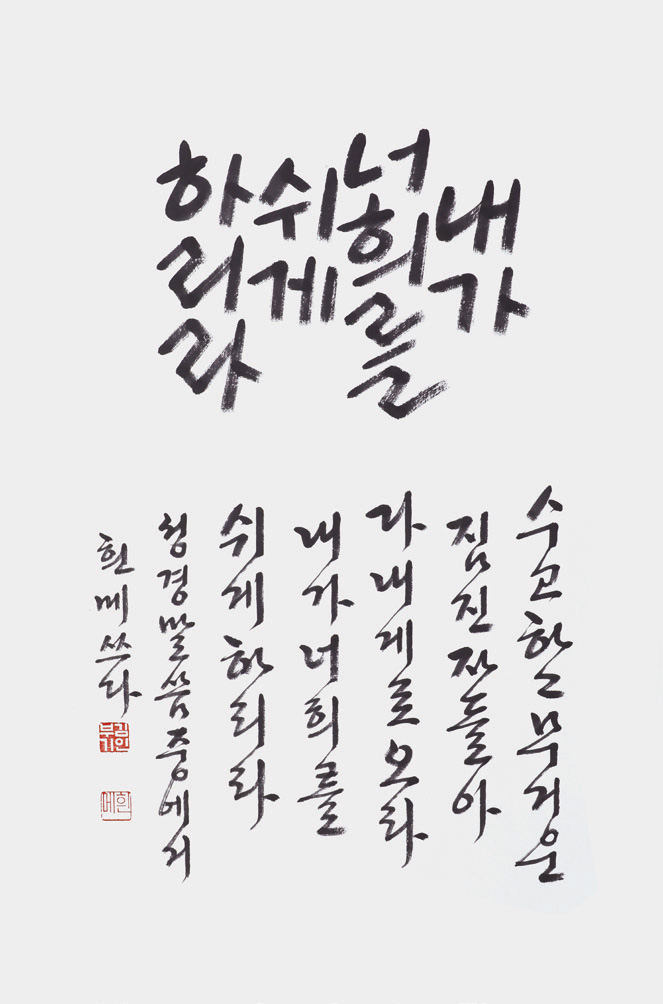 내가
너희를
쉬게
하리라
수고한 무거운
짐진 자들아
다 내게로 오라
내가 너희를
쉬게 하리라
성경말씀 중에서
흰메 쓰다
흰메